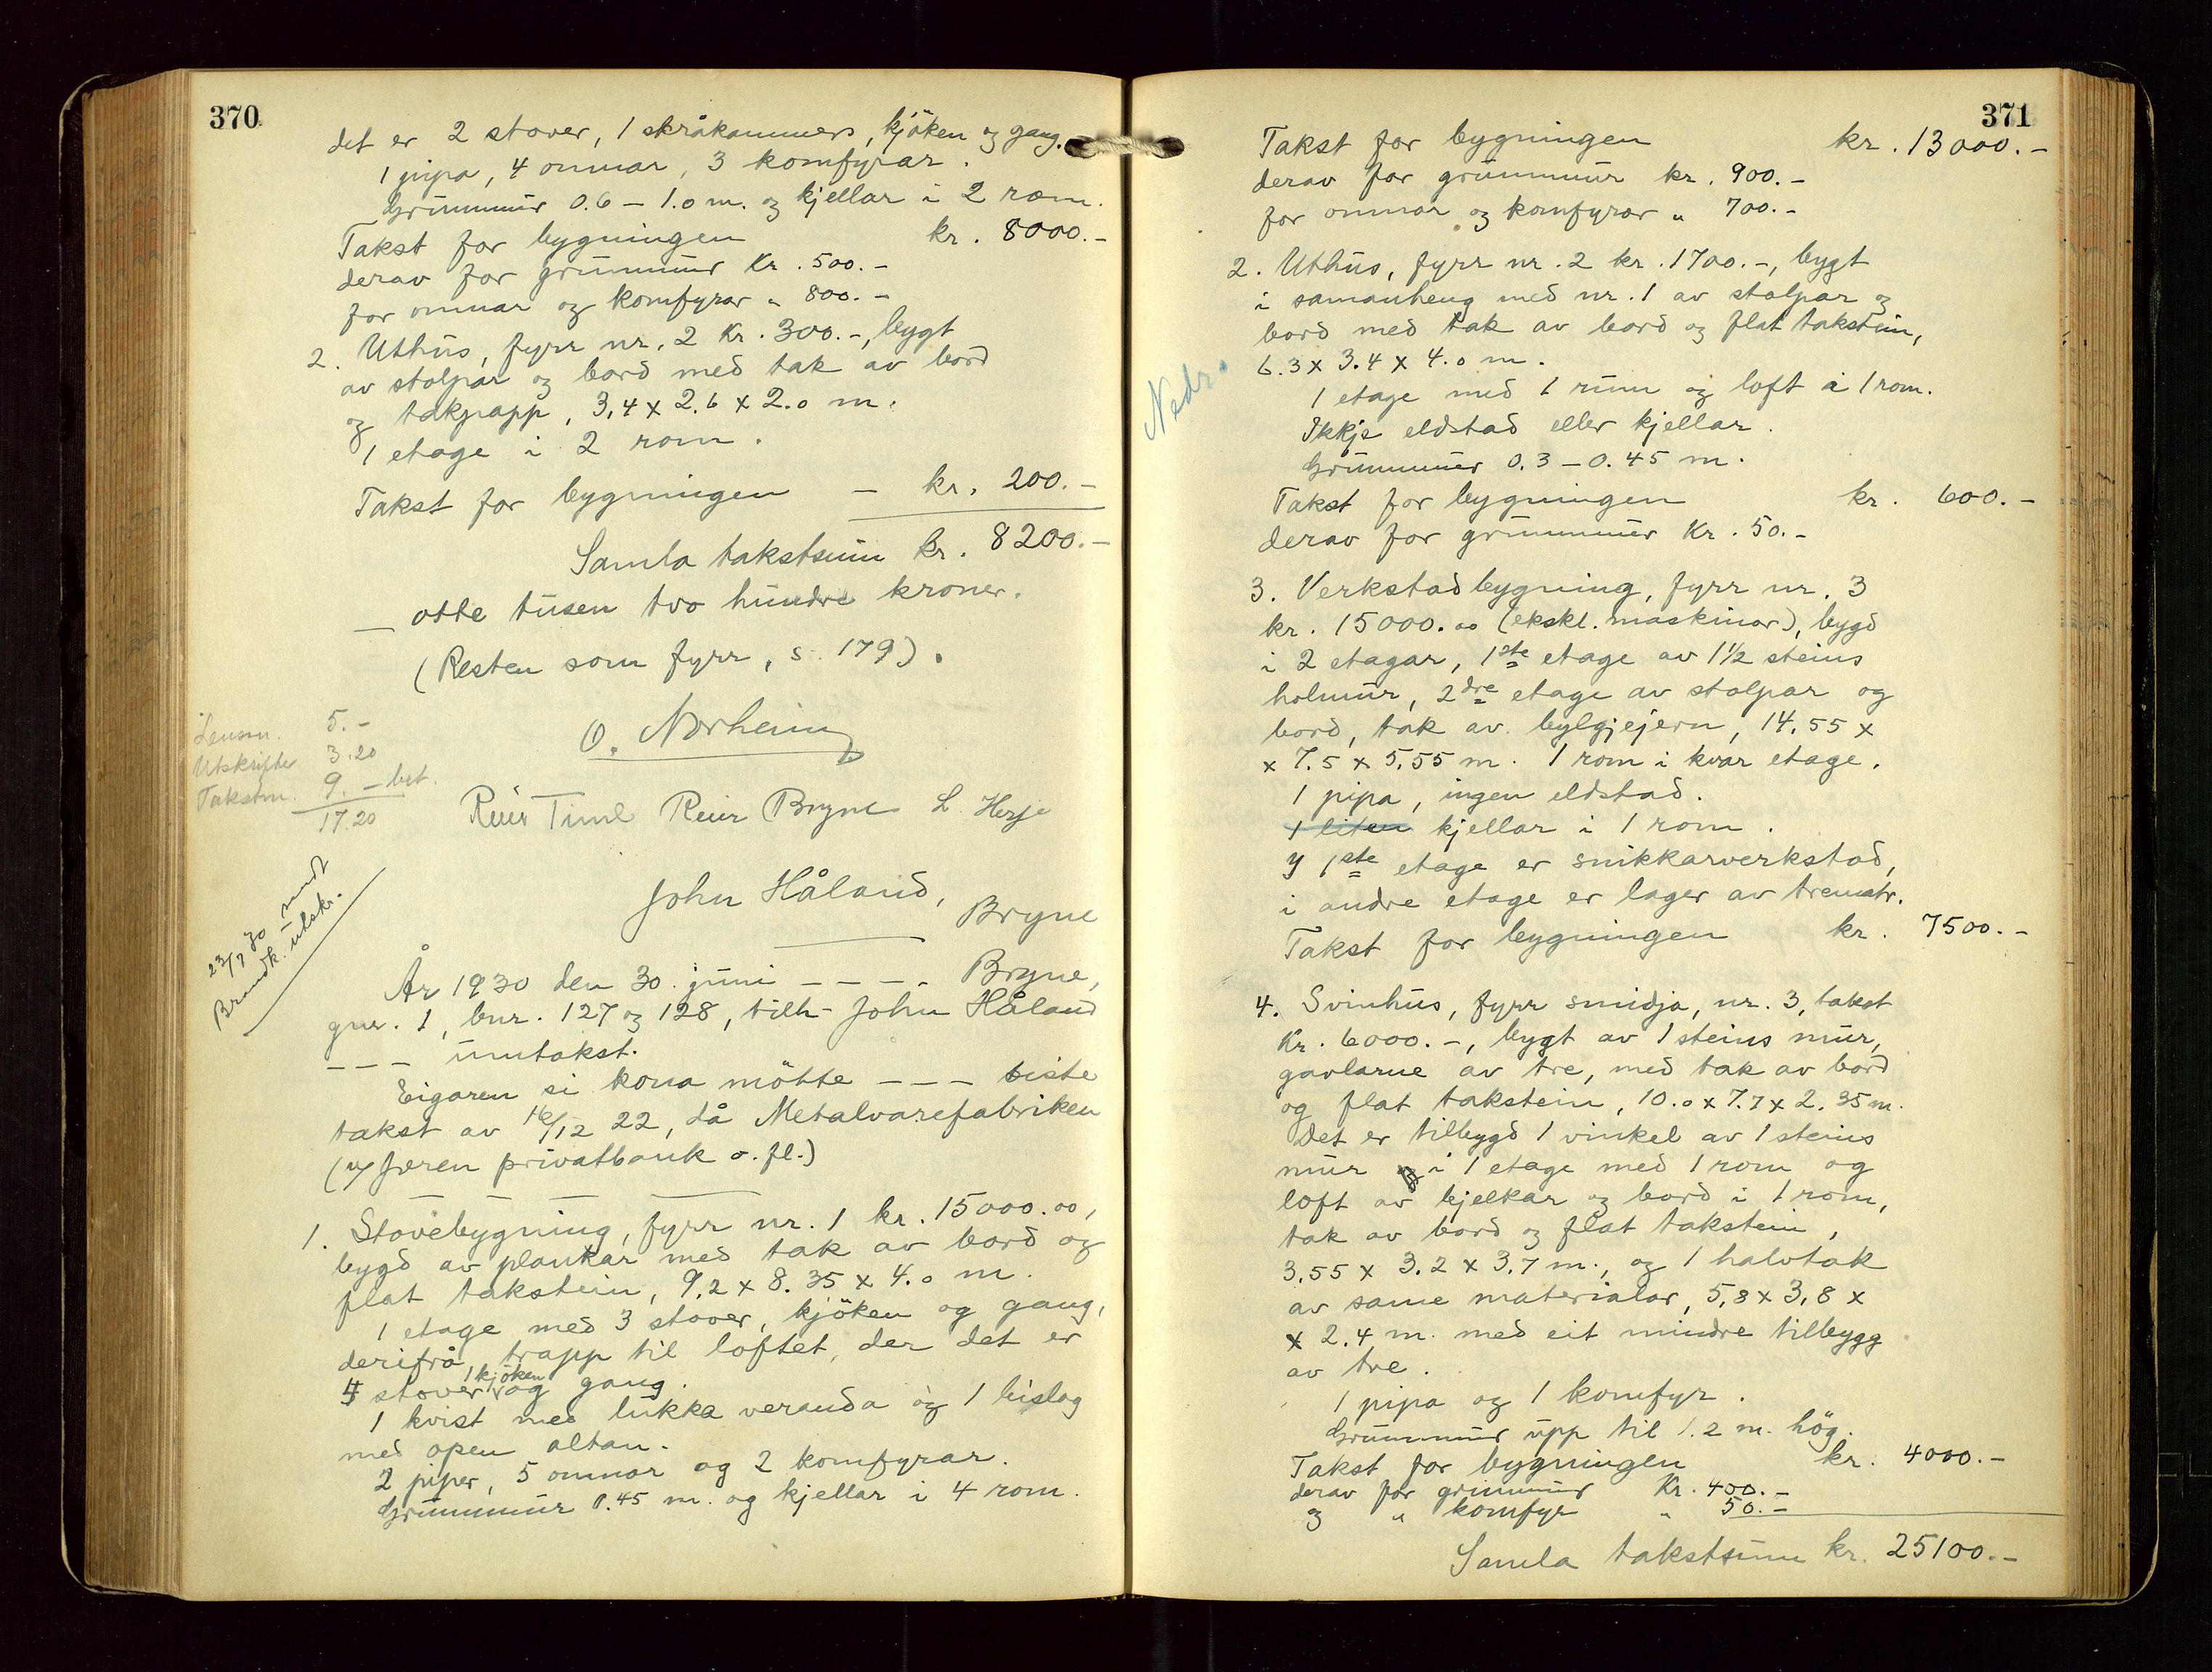 370
det er 2 stover, 1 skråkammers, kjöken og gang.
1 pipa, 4 omnar, 3 komfyrar.
Grunnmur 0.6 – 1.0 m. og kjellar i 2 rom.
Takst for bygningen kr. 8000.–
derav for grunnmur Kr. 500.–
for omnar og komfyrar " 800.–
2. Uthus, fyrr nr. 2 Kr. 300.–, bygt
av stolpar og bord med tak av bord
og takpapp, 3,4 x 2.6 x 2.0 m.
1 etage i 2 rom.
Takst for bygningen – kr. 200.–
Samla takstsum kr. 8200.–
– otte tusen tvo hundre kroner.
(Resten som fyrr, s. 179).
O. Norheim
Lensm. 5.–
Utskrifter 3.20
Takstm. 9.– bet.
17.20
Reier Time Reier Bryne L. Herje
23/7 30 sendt
Brandk. utskr.
John Håland,
Bryne
År 1930 den 30. juni – – – . Bryne,
gnr. 1, bnr. 127 og 128, tilh. John Håland
– – – umtakst.
Eigaren si kona mötte – – – siste
takst av 16/12 22, då Metalvarefabriken
(v/ Jæren privatbank o. fl.)
1. Stovebygning, fyrr nr. 1 kr. 15000.00,
bygd av plankar med tak av bord og
flat takstein, 9.2 x 8.35 x 4.0 m.
1 etage med 3 stover, kjöken og gang,
derifrå trapp til loftet, der det er
4 stover, 1 kjöken og gang.
1 kvist med lukka veranda og 1 bislag
med open altan.
2 piper, 5 omnar og 2 komfyrar.
Grunnmur 0.45 m. og kjellar i 4 rom.
371
Takst for bygningen kr. 13000.–
derav for grunnmur kr. 900.–
for omnar og komfyrar " 700.–
2. Uthus, fyrr nr. 2 kr. 1700.–, bygt
i samanheng med nr. 1 av stolpar og
bord med tak av bord og flat takstein,
6.3 x 3.4 x 4.0 m.
Nedr.
1 etage med 1 rum og loft i 1 rom.
Ikkje eldstad eller kjellar.
Grunnmur 0.3 – 0.45 m.
Takst for bygningen kr. 600.–
derav for grunnmur Kr. 50.–
3. Verkstadbygning, fyrr nr. 3
kr. 15000.00 (ekskl. maskinar), bygd
i 2 etagar, 1ste etage av 1½ steins
holmur, 2dre etage av stolpar og
bord, tak av bylgjejern, 14.55 x
x 7.5 x 5.55 m. 1 rom i kvar etage.
1 pipa, ingen eldstad.
1 liten kjellar i 1 rom.
I 1ste etage er snikkarverkstad,
i andre etage er lager av trematr.
Takst for bygningen kr. 7500.–
4. Svinhus, fyrr smidja, nr. 3, takst
Kr. 6000.–, bygt av 1 steins mur,
gavlarne av tre, med tak av bord
og flat takstein, 10.0 x 7.7 x 2.35 m.
Det er tilbygd 1 vinkel av 1 steins
mur i 1 etage med 1 rom og
loft av bjelkar og bord i 1 rom,
tak av bord og flat takstein,
3.55 x 3.2 x 3.7 m., og 1 halvtak
av same materialar, 5,8 x 3,8 x
x 2.4 m. med eit mindre tilbygg
av tre.
1 pipa og 1 komfyr.
Grunnmur upp til 1.2 m. hög.
Takst for bygningen kr. 4000.–
derav for grunnmur Kr. 400.–
og " komfyr " 50.–
Samla takstsum kr. 25100.–